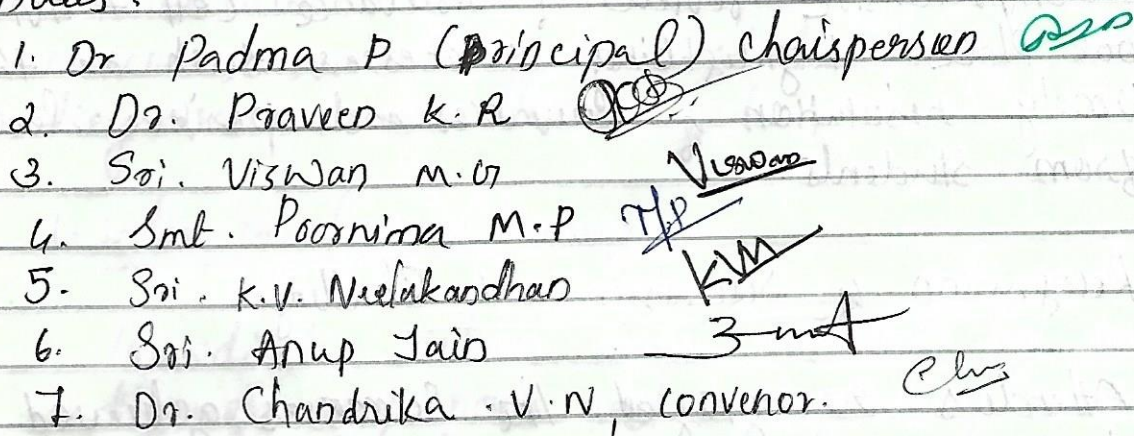 1. Dr Padma P (Principal) Chairperson
2. Dr. Praveen K.R
3. Sri. Viswan M.G Viswan
4. Smt. Poornima M.P
5. Sri. K.V. Neelakandhan
6. Sri. Anup Jain
7. Dr. Chandrika.V.N, convenor.